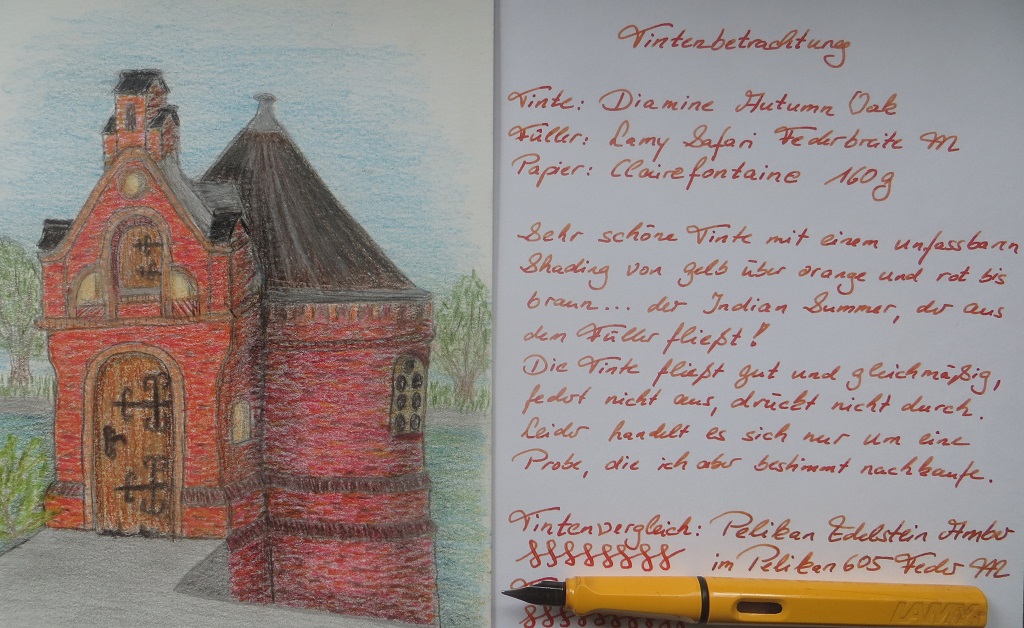 Tintenbetrachtung
Tinte: Diamine Autumn Oak
Füller: Lamy Safari Federbreite M
Papier: Clairefontaine 160g
Sehr schöne Tinte mit einem unfassbarn
Shading von gelb über orange und rot bis
braun... der Indian Summer, der aus
dem Füller fließt!
Die Tinte fließt gut und gleichmäßig,
fedért nicht aus, drückt nicht durch.
Leider handelt es sich nur um eine
Probe, die ich aber bestimmt nachkaufe.
Tintenvergleich: Pelikan Edelstein Amber
im Pelikan 605 Feder M
LAMY